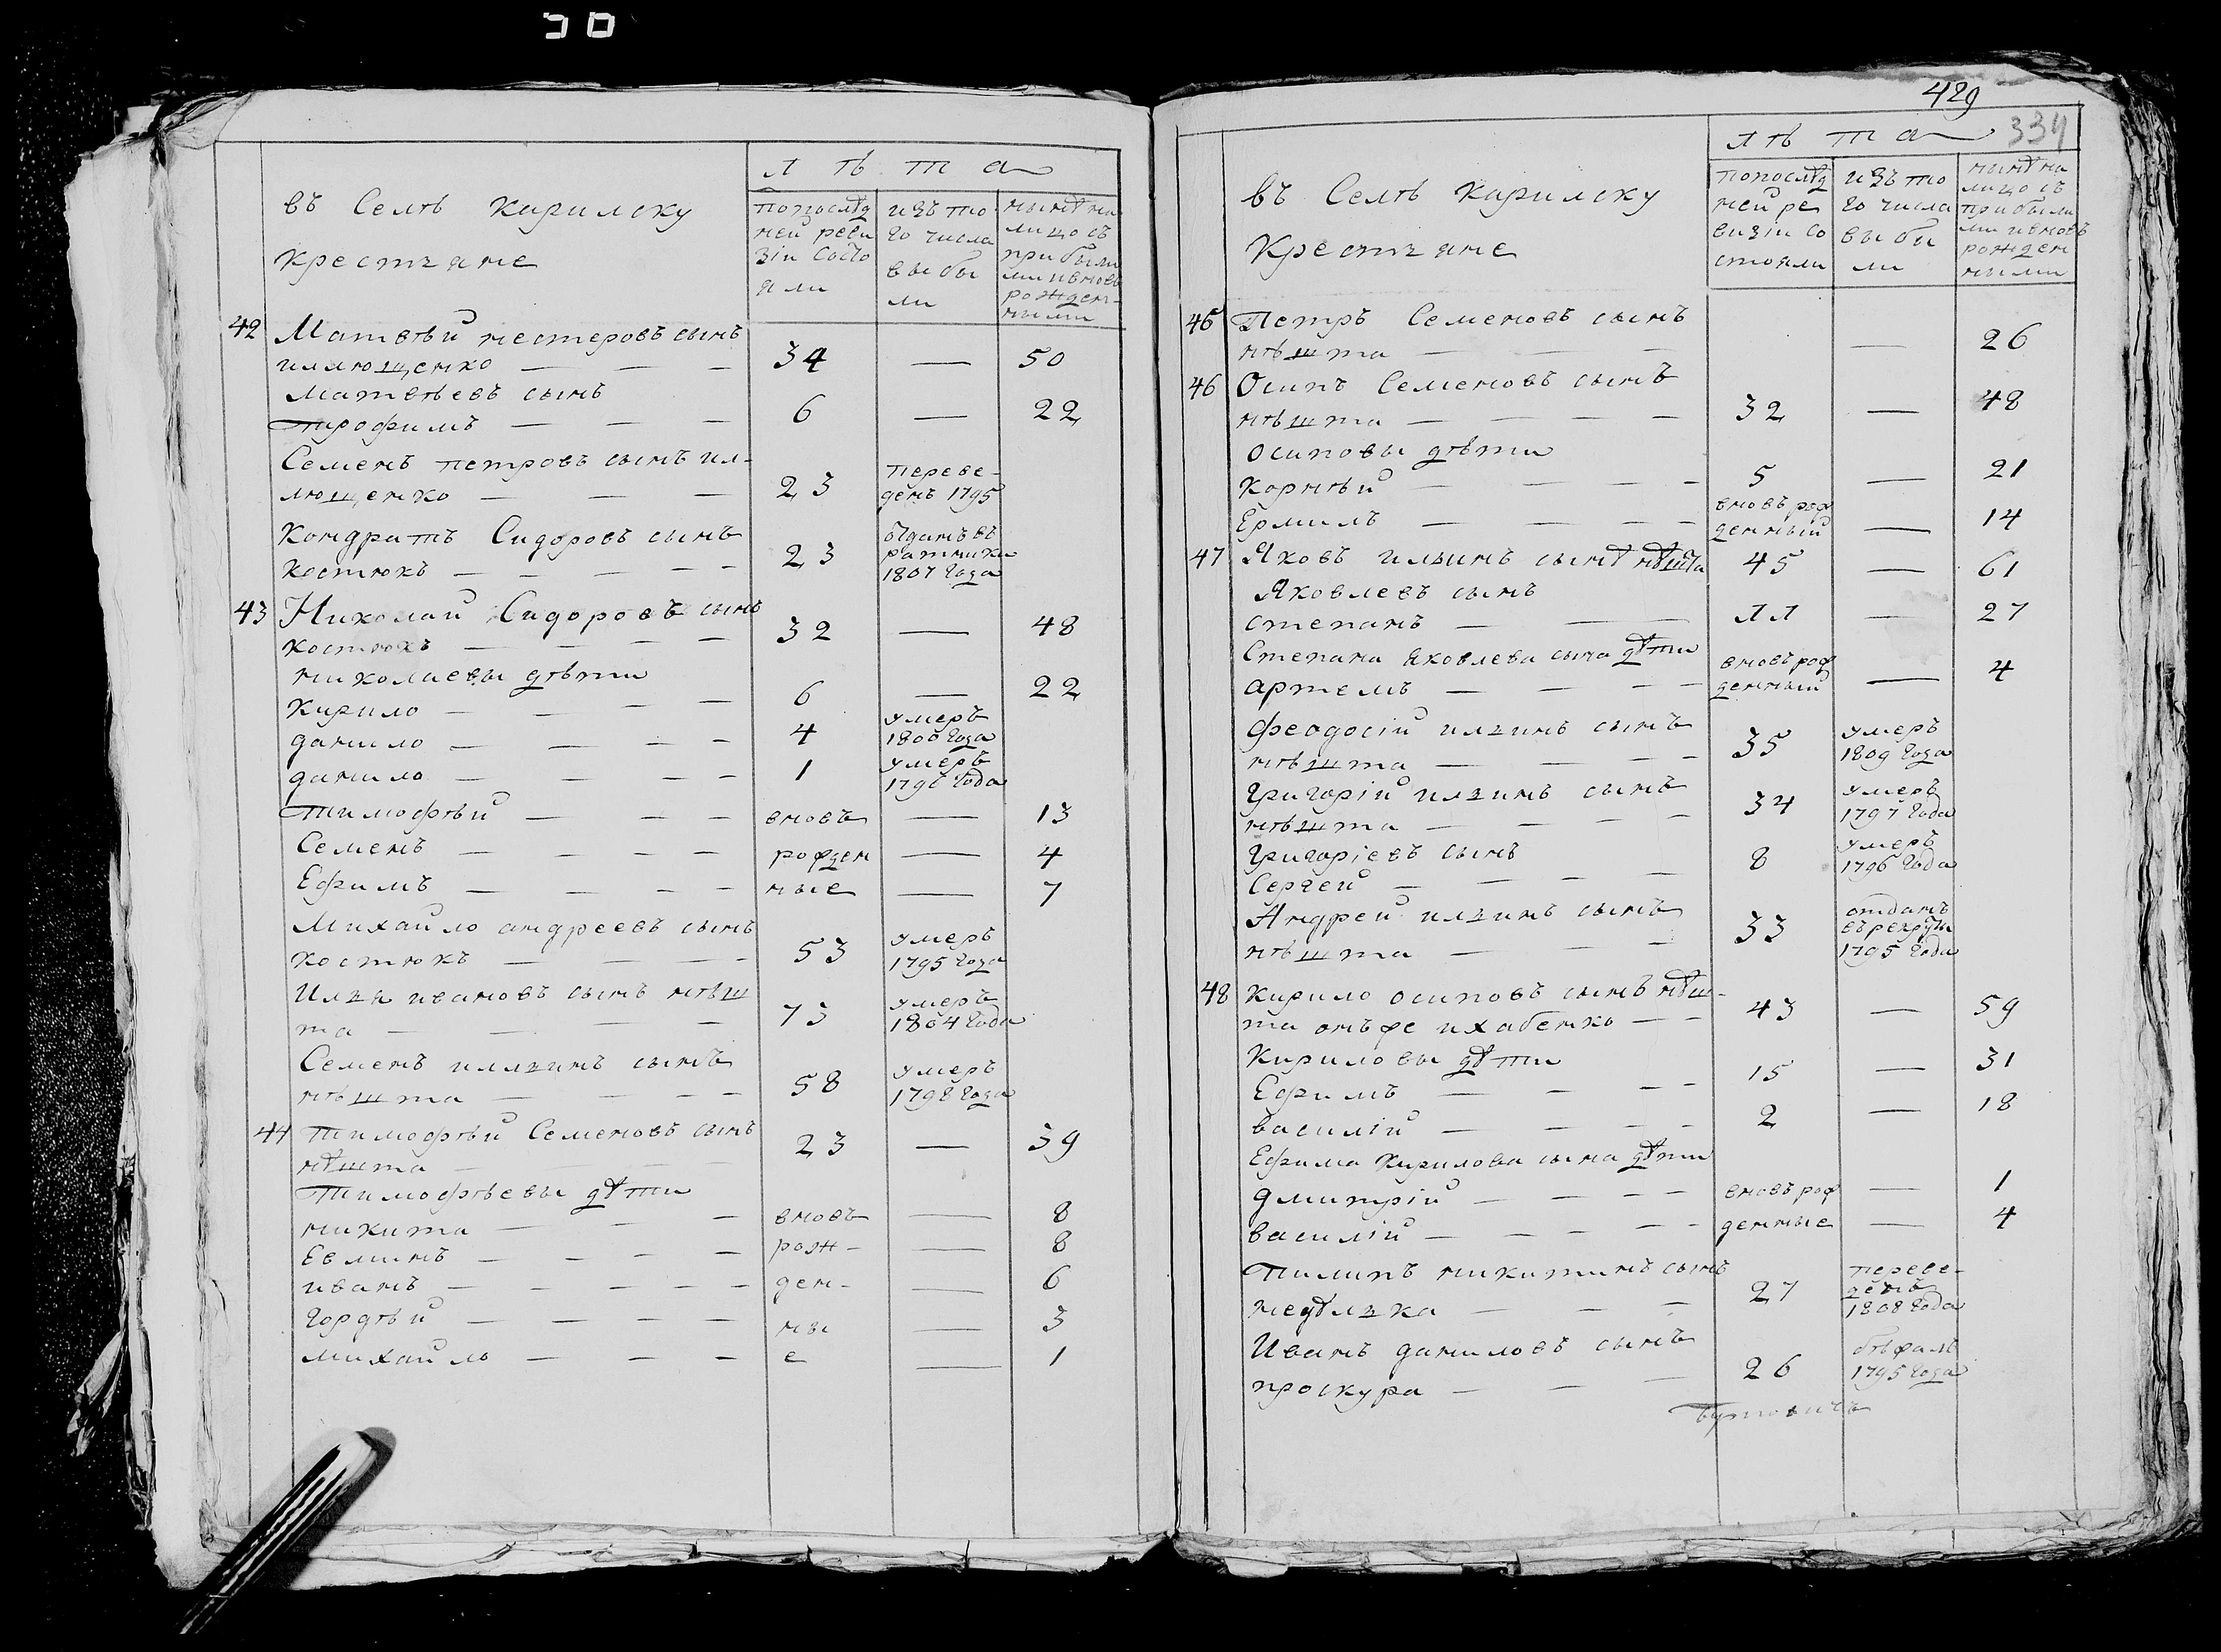 л ѣ т а
въ Селѣ Кирилску
Крестьяне
попослѣд
ней реви
зіи состо
яли
изъ то
го числа
выбы
ли
нынѣ на
лицо съ
прибыли
ми ивновъ
рожден-
ными
42 Матвѣй нестеровъ сынъ
иллющенко — — — 34 — 50
Матвѣевъ сынъ
трофимъ — — — 6 — 22
Семенъ петровъ сынъ ил-
лющенко — — — 23 переве-
денъ 1795
Кондратъ Сидоровъ сынъ
Костюкъ — — — — 23 ѿданъ въ
ратники
1807 года
43 Николай Сидоровъ сынъ
костюкъ — — — 32 — 48
николаевы дѣти
Кирило — — — — 6 — 22
данило — — — — 4 умеръ
1800 года
данило — — — — 1 умеръ
1796 года
тимофѣй — — — вновь — 13
Семенъ — — — — рожден — 4
Ефимъ — — — — ные — 7
Михайло андреевъ сынъ
костюкъ — — — — 53 умеръ
1795 года
Илья ивановъ сынъ нѣш
та — — — — 73 умеръ
1804 года
Семенъ иллинъ сынъ
нѣшта — — — — 58 умеръ
1798 года
44 тимофѣй Семеновъ сынъ
нѣшта — — — 23 — 39
Тимофѣевы дѣти
никита — — — вновь — 8
Евлинъ — — — — рож- — 8
иванъ — — — — — ден- — 6
гордѣй — — — — ны — 3
михайло — — — е — 1
429
334
л ѣ т а
въ Селѣ Кирилску
Крестьяне
попослѣд
ней ре
визіи со
стояли
изъ то
го числа
выбы
ли
нынѣ на
лицо съ
прибыли
ми ивновъ
рожден
ными
45 Петръ Семеновъ сынъ
нѣшта — — — — 26
46 Осипъ Семеновъ сынъ
нѣшта — — — — 32 — 48
Осиповы дѣти
Корнѣй — — — — 5 — 21
Ермилъ — — — — вновъ рож
денный — 14
47 Яковъ ильинъ сынъ нѣшта 45 — 61
Яковлевъ сынъ
степанъ — — — 11 — 27
Степана Яковлева сына дѣти
артемъ — — — — вновъ рож
денный — 4
феодосій илинъ сынъ
нѣшта — — — — 35 умеръ
1809 года
Григорій илинъ сынъ
нѣшта — — — — 34 умеръ
1797 года
Григоріевъ сынъ
Сергей — — — — 8 умеръ
1796 года
Андрей илинъ сынъ
нѣшта — — — 33 отданъ
въ рекруты
1795 года
48 Кирило осиповъ сынъ нѣш-
та онъже ихабенко — — 43 — 59
Кириловы дѣти
Ефимъ — — — — 15 — 31
василій — — — — 2 — 18
Ефима Кирилова сына дѣти
дмитрій — — — — вновъ рож — 1
василій — — — — денные — 4
Пилипъ никитинъ сынъ
недѣлька — — — 27 переве-
денъ
1808 года
Иванъ даниловъ сынъ
проскура — — — 26 бѣжалъ
1795 года